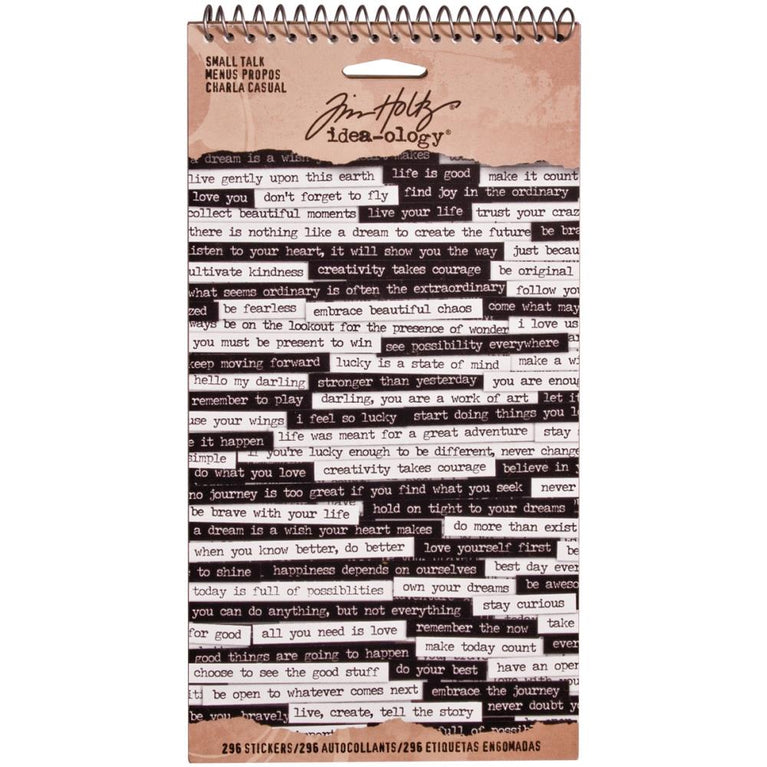 SMALL TALK
MENUS PROPOS
CHARLA CASUAL
Tim Holtz®
idea-ology®
a dream is a wish makes
live gently upon this earth life is good make it count
love you don't forget to fly find joy in the ordinary
collect beautiful moments live your life trust your craz
there is nothing like a dream to create the future be bra
isten to your heart, it will show you the way just becau
ultivate kindness creativity takes courage be original
what seems ordinary is often the extraordinary follow you
zed be fearless embrace beautiful chaos come what may
ways be on the lookout for the presence of wonder i love us
you must be present to win see possibility everywhere
keep moving forward lucky is a state of mind make a wi
hello my darling stronger than yesterday you are enoug
remember to play darling, you are a work of art let it
use your wings i feel so lucky start doing things you l
e it happen life was meant for a great adventure stay s
simple if you're lucky enough to be different, never change
do what you love creativity takes courage believe in y
no journey is too great if you find what you seek never
be brave with your life hold on tight to your dreams
a dream is a wish your heart makes do more than exist
when you know better, do better love yourself first be
to shine happiness depends on ourselves best day ever
today is full of possiblities own your dreams be aweso
you can do anything, but not everything stay curious
for good all you need is love remember the now take
good things are going to happen make today count ever
choose to see the good stuff do your best have an open
be open to whatever comes next embrace the journey
be you bravely live, create, tell the story never doubt yo
full of possib
296 STICKERS/296 AUTOCOLLANTS/296 ETIQUETAS ENGOMADAS